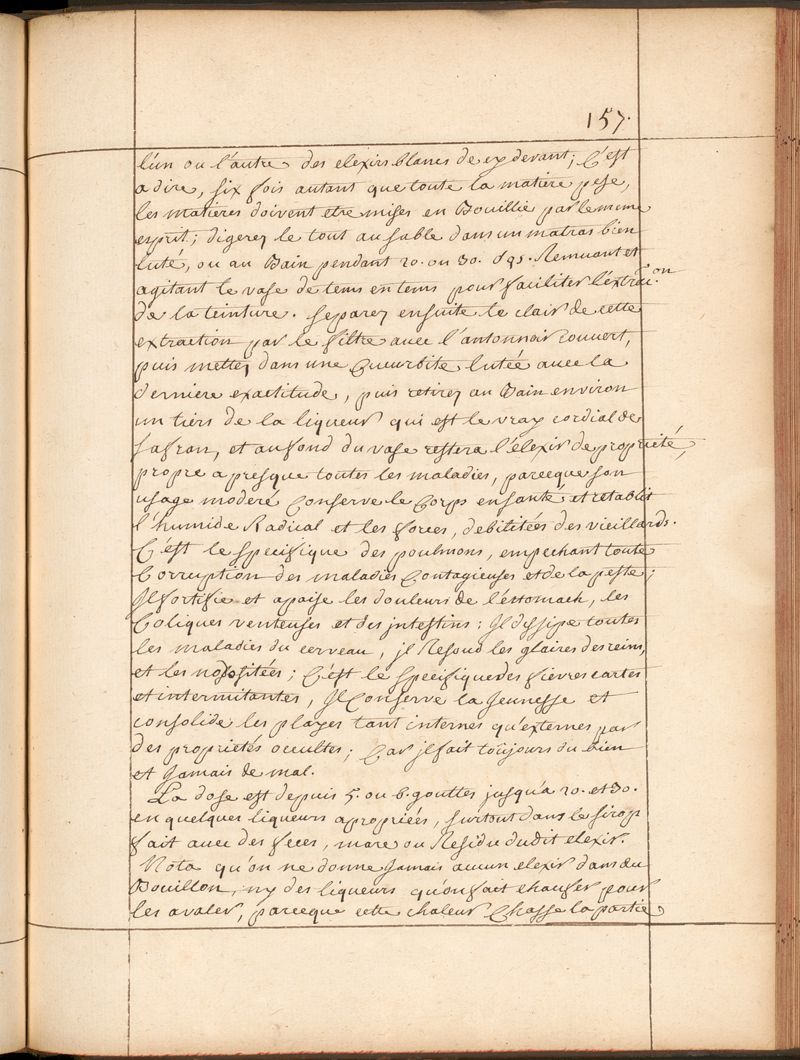 157.
l'un ou l'autre des elexirs blancs de cy devant; C'est
a dire, six fois autant que toute la matiere pese,
les matieres doivent etre mises en Bouillie par le meme
esprit; digerez le tout au sable dans un matras bien
luté, ou au Bain pendant 20. ou 30. Remuant et
agitant le vase de tems en tems pour faciliter l'extrac.on
de la teinture. Separez ensuite le clair de cette
extraction par le filtre avec l'antonnoir couvert,
puis mettez dans une Cucurbite lutée avec la
derniere exactitude, puis retirez au Bain environ
un tiers de la liqueur qui est le vray cordial de
safran, et au fond du vase restera l'élexir de proprieté,
propre a presque toutes les maladies, parceque son
usage moderé Conserve le Corps en santé et retablit
l'humide Radical et les forces, debilitées des vieillards.
C'est le specifique des poulmons, empechant toute
Corruption des maladies Contagieuses et de la peste;
Il fortifie et apaise les douleurs de l'éstomach, les
Coliques venteuses et des intestins: Il dissipe toutes
les maladies du cerveau, il Resoud les glaires des reins,
et les nodosités; C'est le specifique des fievres cartes
et intermitantes, Il Conserve la Jeunesse et
consolide les playes tant internes qu'externes par
des proprietés occultes; Car il fait toûjours du bien
et Jamais de mal.
La dose est depuis 5. ou 6. gouttes jusqu'a 20. et 30.
en quelques liqueurs apropriées, surtout dans le sirop
fait avec des feces, marc ou Residu dudit elexir.
Nota qu'on ne donne Jamais aucun elexir dans du
Bouillon, ny des liqueurs qu'on fait chaufer pour
les avaler, parceque cette chaleur Chasse la partie